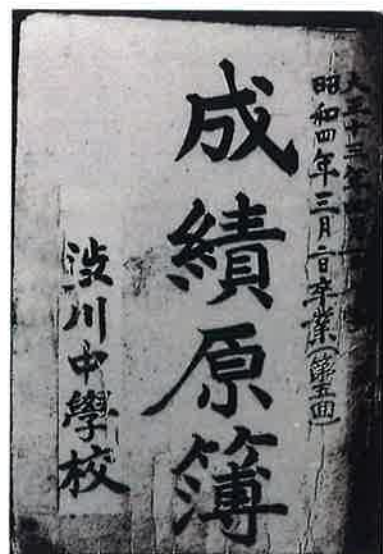 大正十三年
昭和四年三月二日卒業(第五回)
成績原簿
渋川中學校